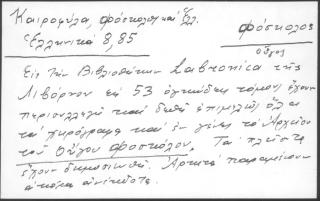 Καιροφύλα, Φόσκολος και Ἑλλ.
Ἑλληνικά 8, 85
Φόσκολος
Οὖγος
Εἰς τὴν Βιβλιοθήκην Labronica τῆς
Λιβόρνου εἰς 53 ὀγκώδεις τόμους ἔχουν
περισυλλεγῆ καὶ δεθῆ ἐπιμελῶς ὅλα
τὰ χειρόγραφα καὶ ἐν γένει τὸ Ἀρχεῖον
τοῦ Οὔγου Φοσκόλου. Τὰ πλεῖστα
ἔχουν δημοσιευθῆ. Ἀρκετὰ παραμένουν
ἀκόμα ἀνέκδοτα.